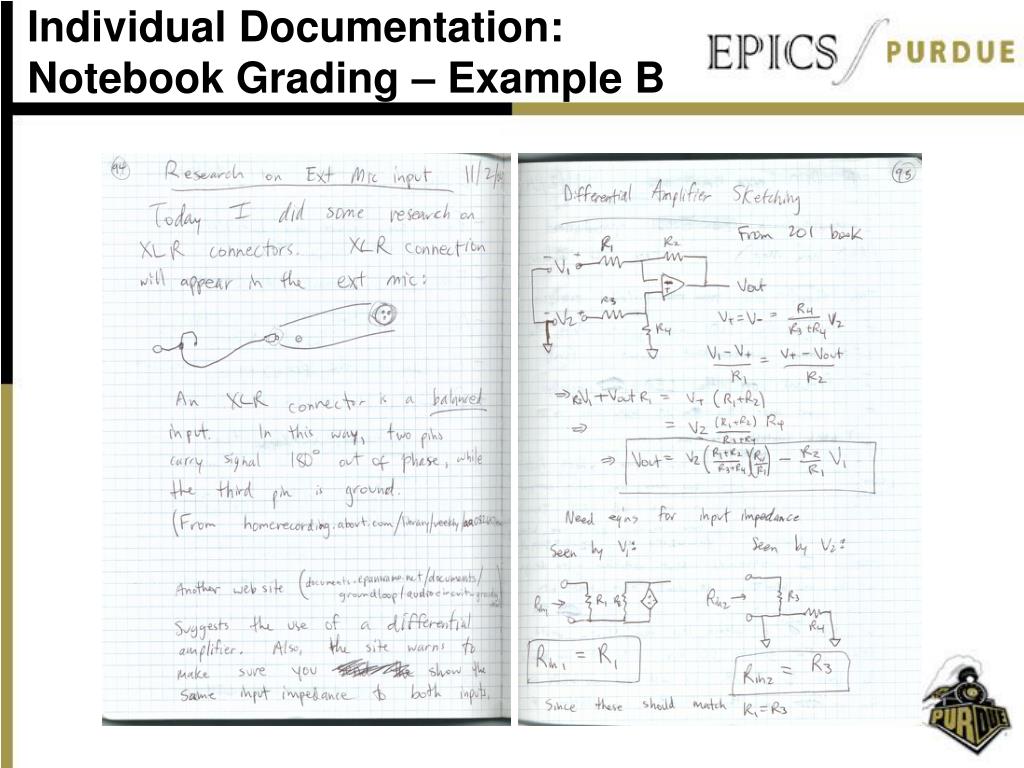 Individual Documentation:
Notebook Grading – Example B
EPICS PURDUE
94
Research on Ext Mic input 11/2/
Today I did some research on
XLR connectors. XLR connection
will appear in the ext mic:
An XLR connector is a balanced
input. In this way, two pins
carry signal 180° out of phase, while
the third pin is ground.
(From homerecording.about.com/library/weekly/
Another web site (documents.epanorama.net/documents/
groundloop/audiocircuit
Suggests the use of a differential
amplifier. Also, the site warns to
make sure you show the
same input impedance to both inputs.
95
Differential Amplifier Sketching
From 201 book
R1 R2
V1
Vout
R3
V2
R4
V+ = V- = R4/(R3+R4) V2
(V1 - V+)/R1 = (V+ - Vout)/R2
⇒ R2V1 + Vout R1 = V+ (R1+R2)
⇒ = V2 (R1+R2)/(R3+R4) R4
⇒ Vout = V2 ((R1+R2)/(R3+R4)) (R4/R1) - R2/R1 V1
Need eq'ns for input impedance
Seen by V1: Seen by V2:
Rin1 → R1 R2
Rin2 → R3
R4
Rin1 = R1
Rin2 = R3
Since these should match R1 = R3
PURDUE